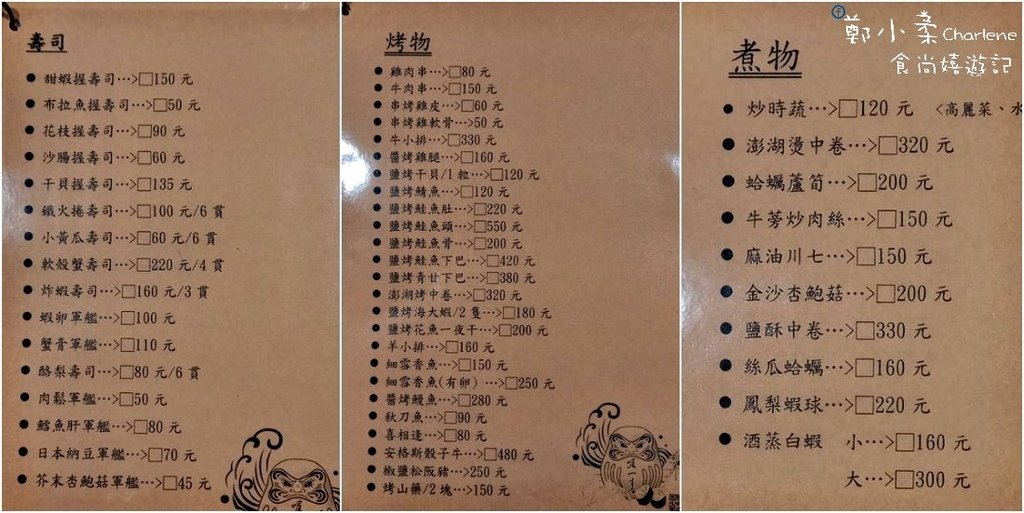 壽司
● 甜蝦握壽司…>□150 元
● 布拉魚握壽司…>□50 元
● 花枝握壽司…>□90 元
● 沙腸握壽司…>□60 元
● 干貝握壽司…>□135 元
● 鐵火捲壽司…>□100 元/6 貫
● 小黃瓜壽司…>□60 元/6 貫
● 軟殼蟹壽司…>□220 元/4 貫
● 炸蝦壽司…>□160 元/3 貫
● 蝦卵軍艦…>□100 元
● 蟹膏軍艦…>□110 元
● 酪梨壽司…>□80 元/6 貫
● 肉鬆軍艦…>□50 元
● 鱈魚肝軍艦…>□80 元
● 日本納豆軍艦…>□70 元
● 芥末杏鮑菇軍艦…>□45 元
烤物
● 雞肉串…>□80 元
● 牛肉串…>□150 元
● 串烤雞皮…>□60 元
● 串烤雞軟骨…>50 元
● 牛小排…>□330 元
● 醬烤雞腿…>□160 元
● 鹽烤干貝/1 粒…>□120 元
● 鹽烤鯖魚…>□120 元
● 鹽烤鮭魚肚…>□220 元
● 鹽烤鮭魚頭…>□550 元
● 鹽烤鮭魚骨…>□200 元
● 鹽烤鮭魚下巴…>□420 元
● 鹽烤青甘下巴…>□380 元
● 澎湖烤中卷…>□320 元
● 鹽烤海大蝦/2 隻…>□180 元
● 鹽烤花魚一夜干…>□200 元
● 羊小排…>□160 元
● 細雪香魚…>□150 元
● 細雪香魚(有卵) …>□250 元
● 醬烤鰻魚…>□280 元
● 秋刀魚…>□90 元
● 喜相逢…>□80 元
● 安格斯骰子牛…>□480 元
● 椒鹽松阪豬…>250 元
● 烤山藥/2 塊…>150 元
鄭小柔Charlene
食尚嬉遊記
煮物
● 炒時蔬…>□120 元 <高麗菜、水
● 澎湖燙中卷…>□320 元
● 蛤蠣蘆筍…>□200 元
● 牛蒡炒肉絲…>□150 元
● 麻油川七…>□150 元
● 金沙杏鮑菇…>□200 元
● 鹽酥中卷…>□330 元
● 絲瓜蛤蠣…>□160 元
● 鳳梨蝦球…>□220 元
● 酒蒸白蝦 小…>□160 元
大…>□300 元